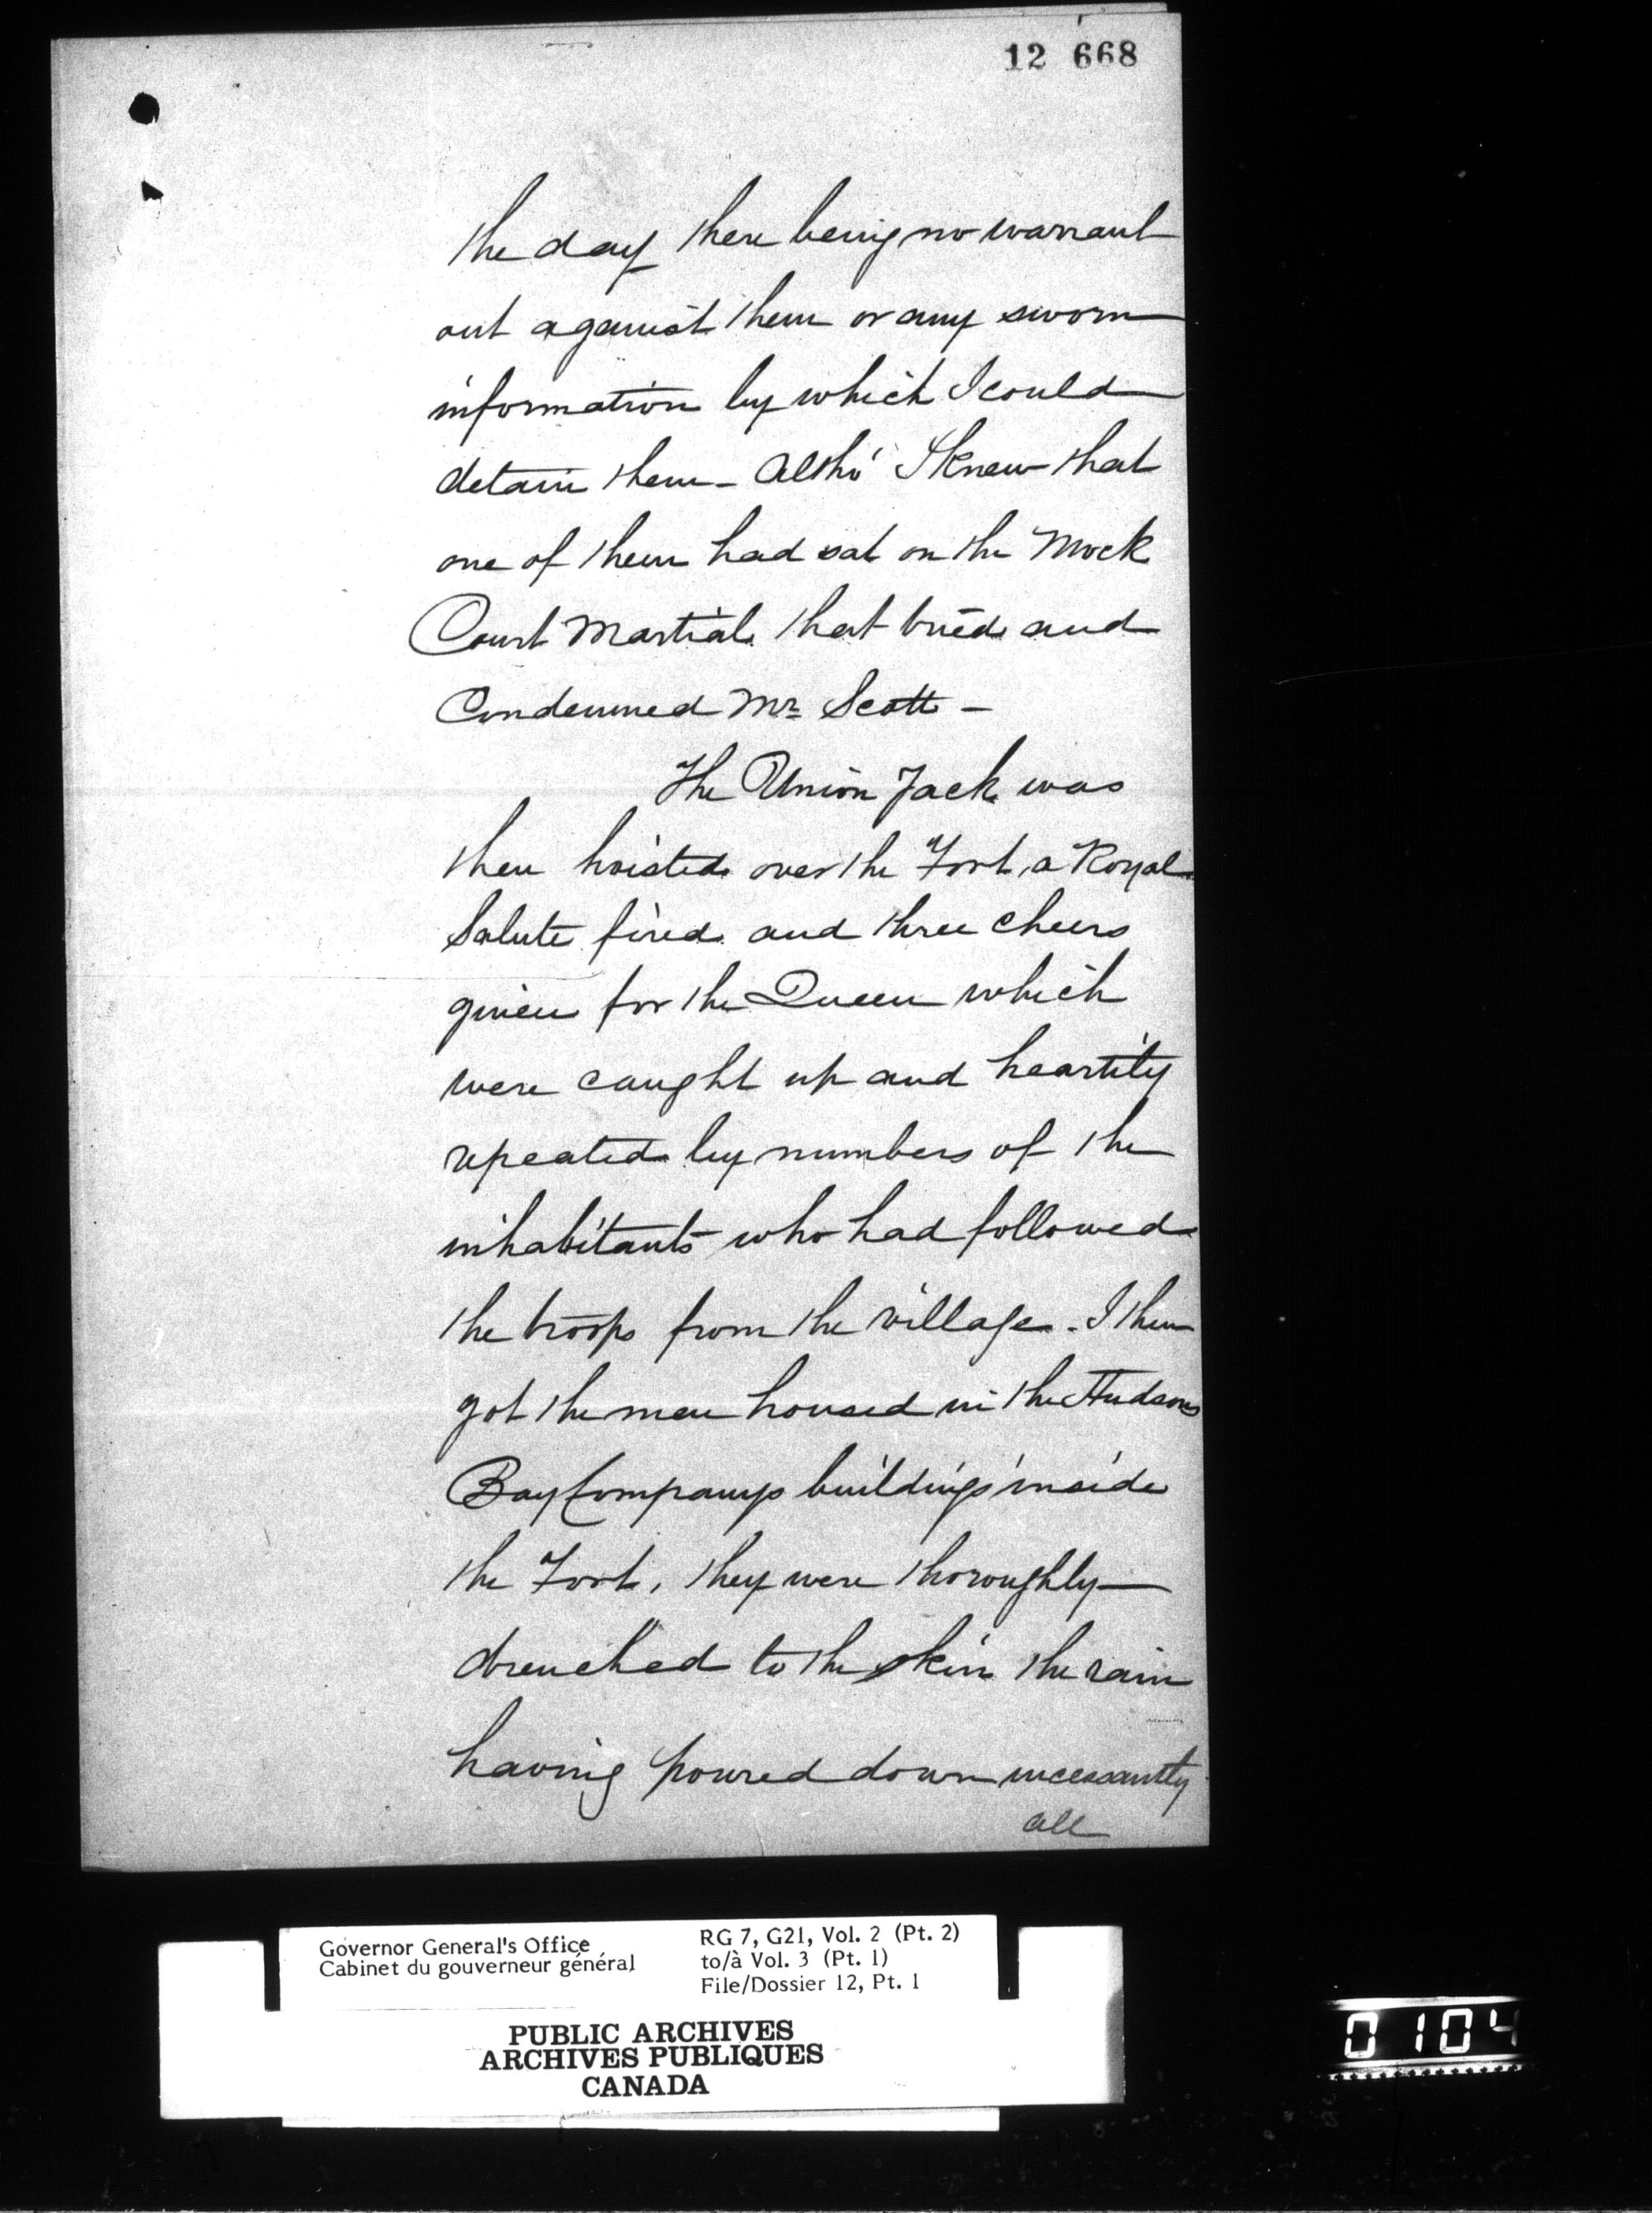 12 668
the day there being no warrant
out against them or any sworn
information by which I could
detain them - Altho' I knew that
one of them had sat on the Mock
Court Martial that tried and
Condemned Mr Scott -
The Union Jack was
then hoisted over the Fort, a Royal
Salute fired and three cheers
given for the Queen which
were caught up and heartily
repeated by numbers of the
inhabitants who had followed
the troops from the village. I then
got the men housed in the Hudsons
Bay Companys buildings inside
the Fort, they were thoroughly
drenched to the skin the rain
having poured down incessantly
all
Governor General's Office
Cabinet du gouverneur général
RG 7, G21, Vol. 2 (Pt. 2)
to/à Vol. 3 (Pt. 1)
File/Dossier 12, Pt. 1
PUBLIC ARCHIVES
ARCHIVES PUBLIQUES
CANADA
0104